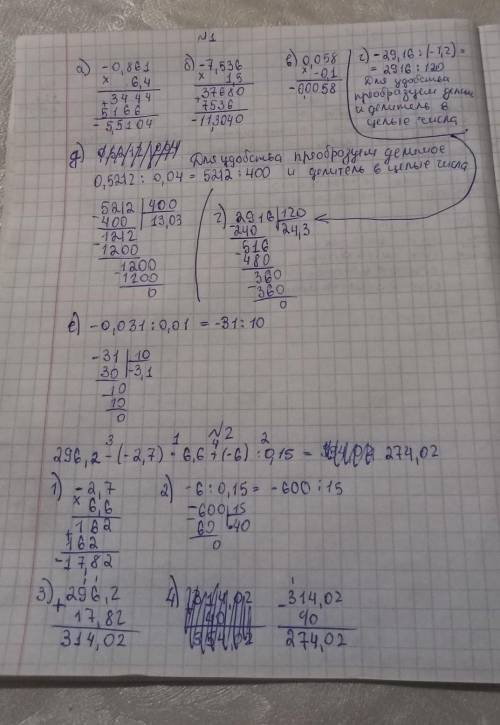 №1
а) -0,861
× 6,4
+3444
5166
-5,5104
б) -7,536
× 1,5
+37680
7536
-11,3040
в) 0,058
× -0,1
-0,0058
г) -29,16 : (-1,2) =
= 2916 : 120
Для удобства
преобразуем делимое
и делитель в
целые числа
д) Для удобства преобразуем делимое
0,5212 : 0,04 = 5212 : 400 и делитель в целые числа
-5212 | 400
400 | 13,03
-1212
1200
-1200
1200
0
г) -2916 | 120
240 | 24,3
-516
480
-360
360
0
е) -0,031 : 0,01 = -31 : 10
-31 | 10
30 | -3,1
-10
10
0
№2
3 1 4 2
296,2 - (-2,7) · 6,6 + (-6) : 0,15 = 274,02
1) -2,7
× 6,6
+162
162
-17,82
2) -6 : 0,15 = -600 : 15
-600 | 15
60 | 40
0
3) +296,2
17,82
314,02
4) -314,02
40
274,02